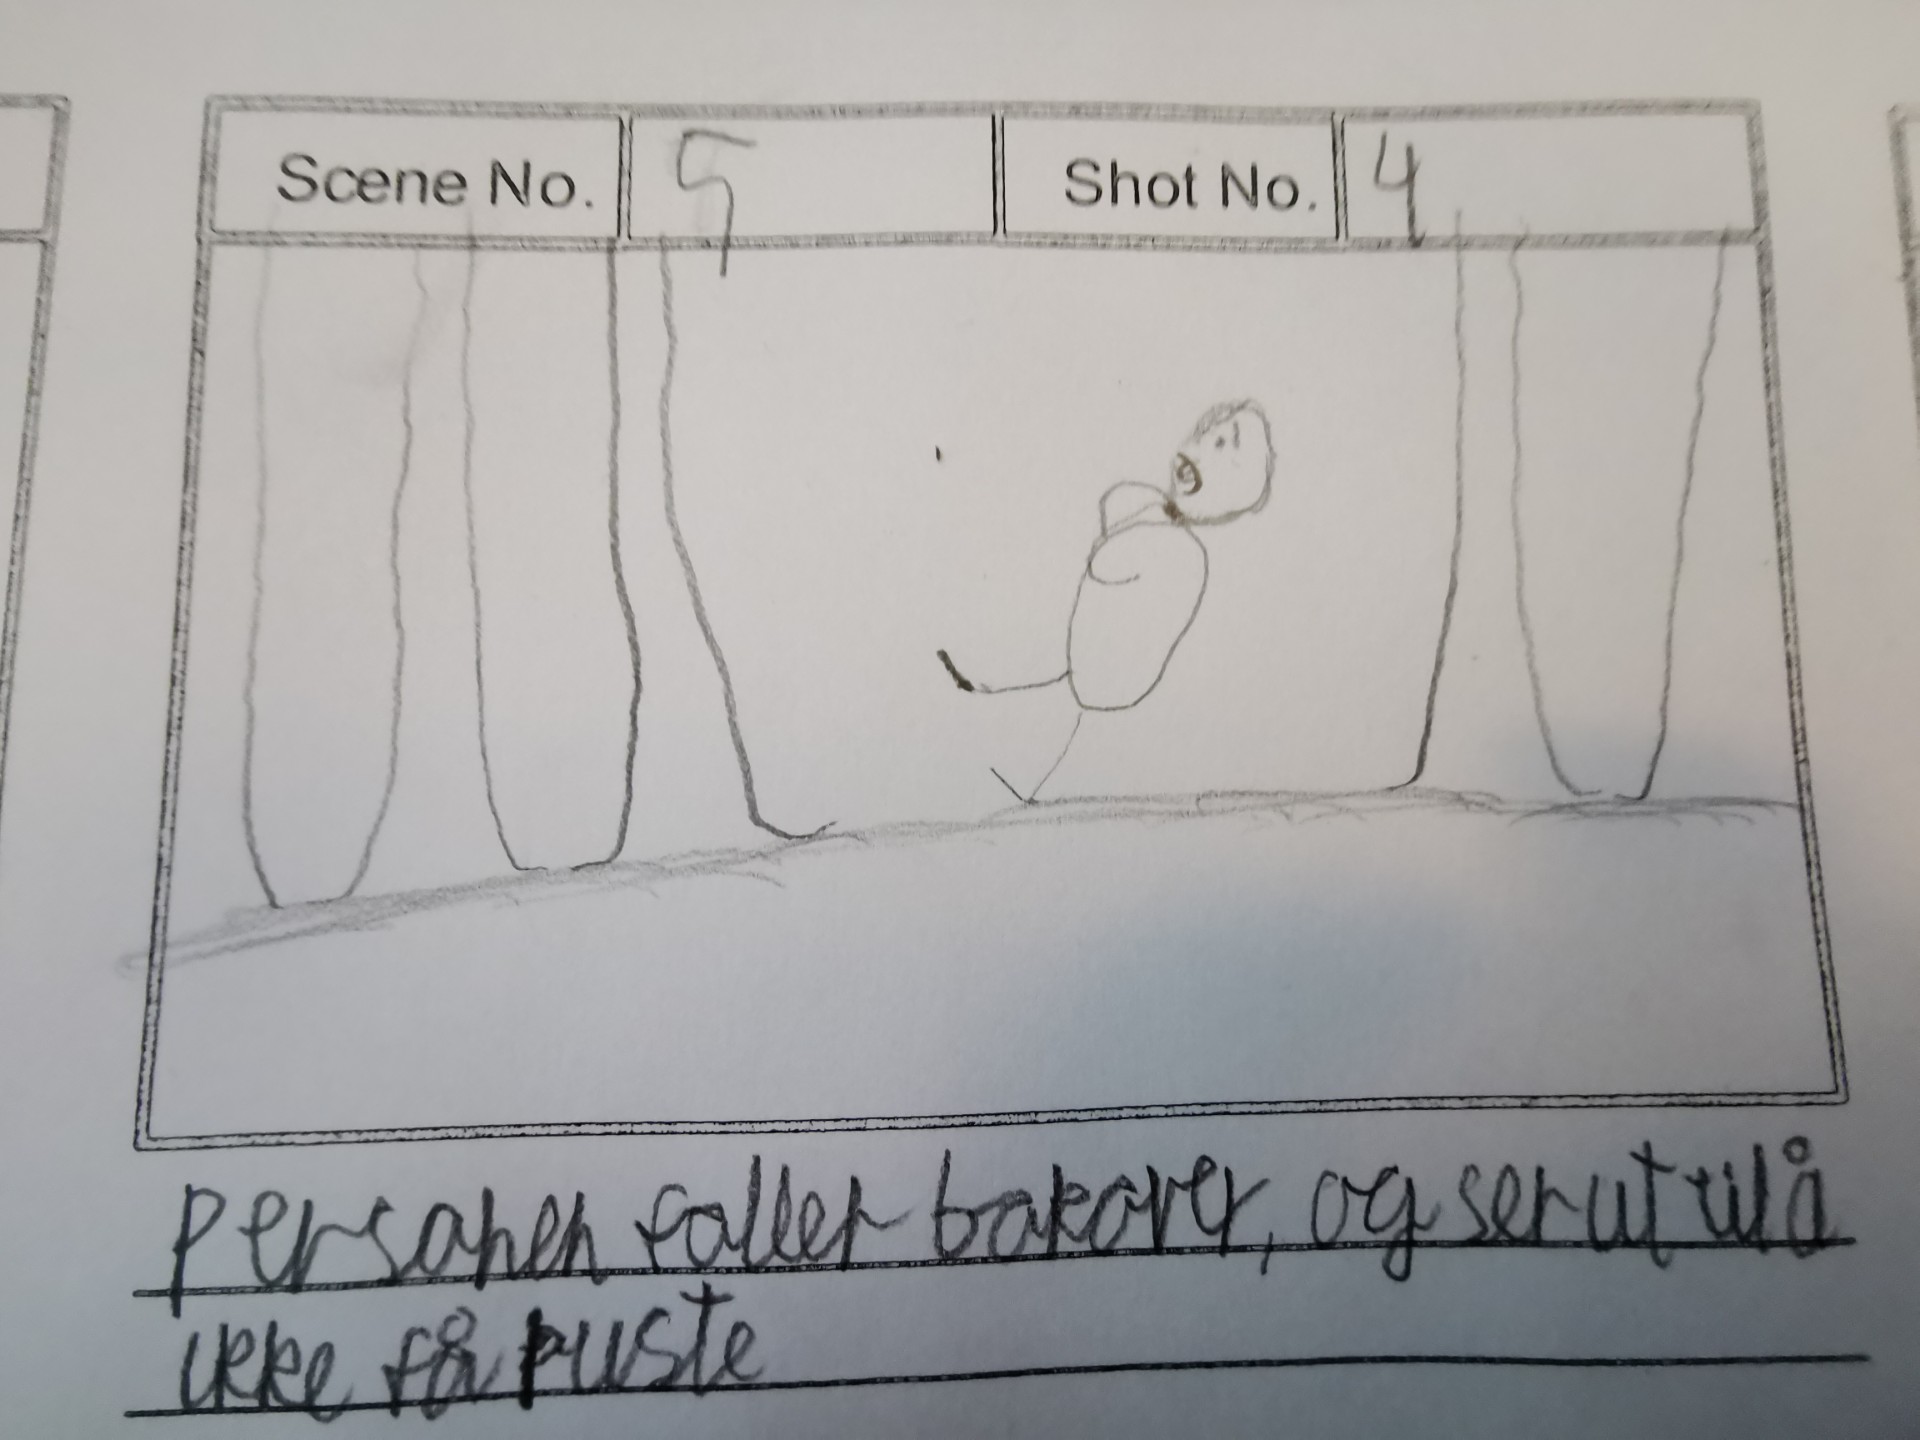 Scene No. 5 Shot No. 4
personen faller bakover, og ser ut til å
ikke få puste